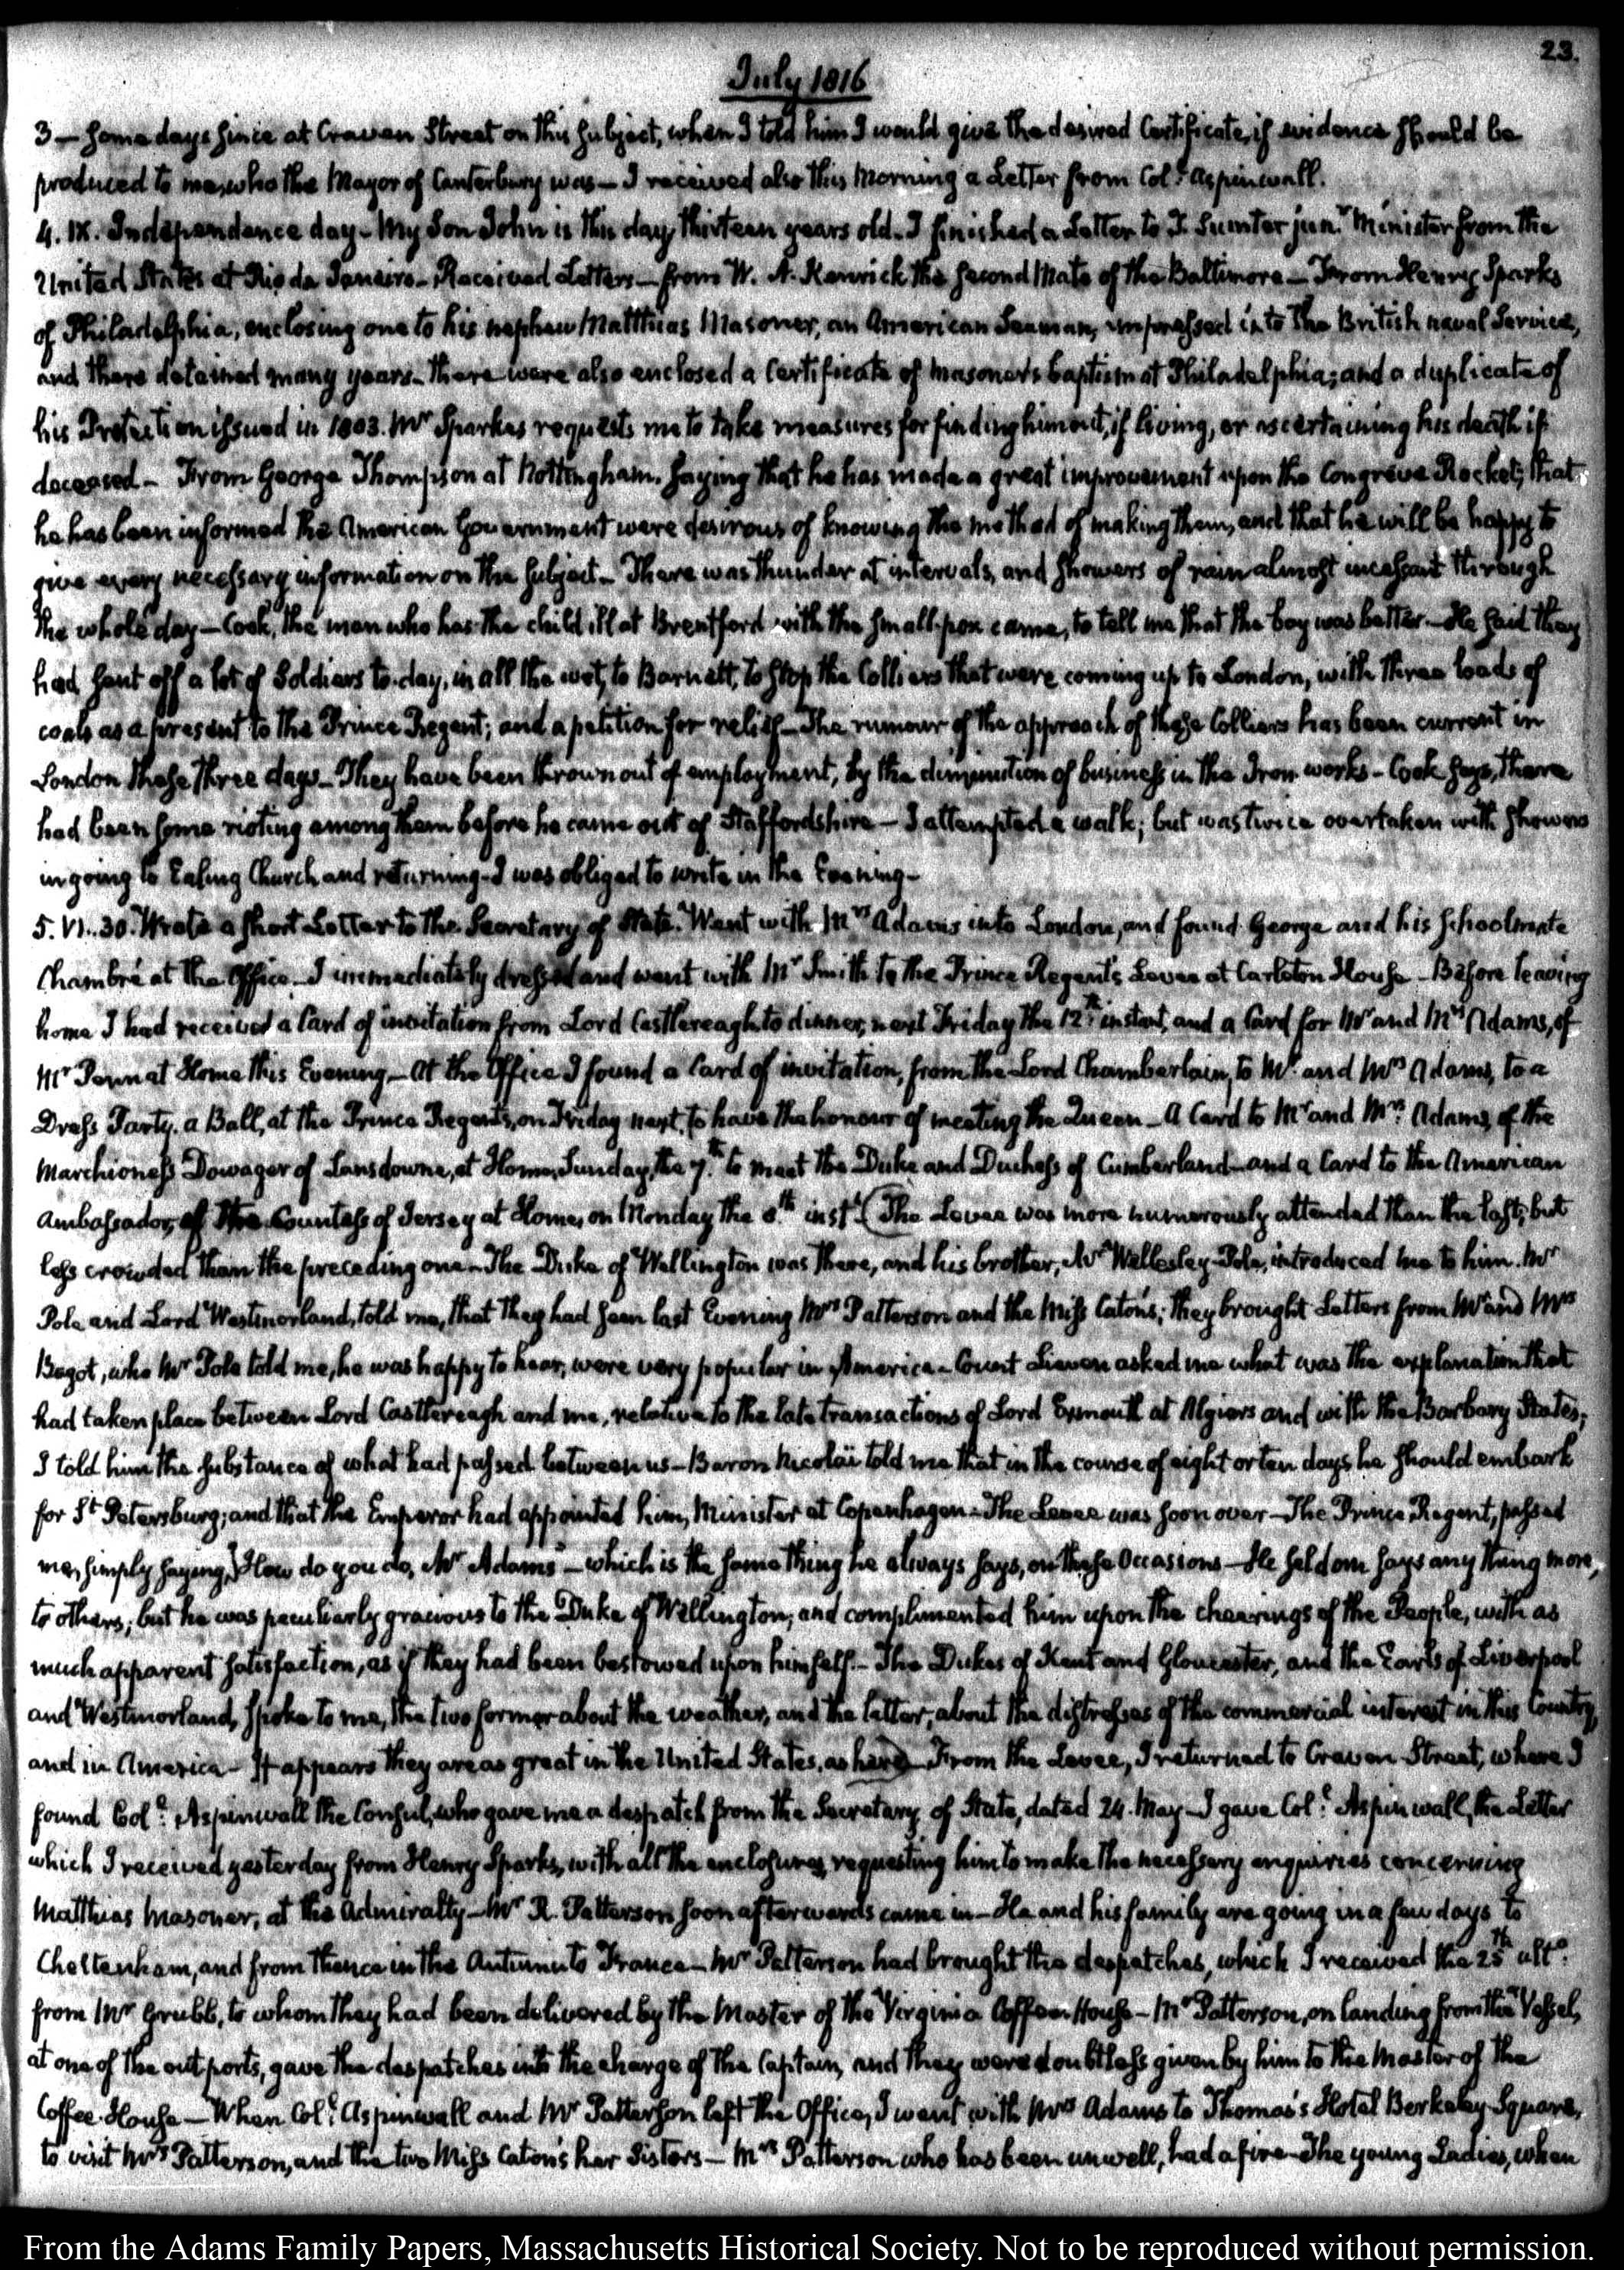 23.
July 1816
3 — some days since at Craven Street on this subject, when I told him I would give the desired Certificate, if evidence should be
produced to me, who the Mayor of Canterbury was — I received also this Morning a Letter from Col.l Aspinwall.
4. IX. Independence day - My Son John is this day, thirteen years old. I finished a Letter to T. Sumter jun.r Minister from the
United States at Rio de Janeiro - Received Letters — from W. A. Kenrick the second Mate of the Baltimore — From Henry Sparks
of Philadelphia, enclosing one to his nephew Matthias Masoner, an American Seaman, impressed into the British naval Service,
and there detained many years - there were also enclosed a Certificate of Masoner's baptism at Philadelphia; and a duplicate of
his Protection issued in 1803. Mr Sparkes requests me to take measures for finding him out, if living, or ascertaining his death if
deceased - From George Thompson at Nottingham. saying that he has made a great improvement upon the Congreve Rocket; that
he has been informed the American Government were desirous of knowing the method of making them, and that he will be happy to
give every necessary information on the subject - There was thunder at intervals, and showers of rain almost incessant through
the whole day — Cook, the man who has the child ill at Brentford with the small-pox came, to tell me that the boy was better - He said they
had sent off a lot of Soldiers to-day, in all the wet, to Barnett, to stop the Colliers that were coming up to London, with three loads of
coals as a present to the Prince Regent; and a petition for relief - The rumour of the approach of these Colliers has been current in
London these three days - They have been thrown out of employment, by the diminution of business in the Iron works - Cook says, there
had been some rioting among them before he came out of Staffordshire — I attempted a walk; but was twice overtaken with showers
in going to Ealing Church and returning - I was obliged to write in the Evening -
5. VI. 30. Wrote a short Letter to the Secretary of State. Went with Mrs Adams into London, and found George and his Schoolmate
Chambré at the Office - I immediately dressed and went with Mr Smith to the Prince Regent's Levee at Carleton House - Before leaving
home I had received a Card of invitation from Lord Castlereagh to dinner, next Friday the 12th instant, and a Card for Mr and Mrs Adams, of
Mr Penn at Home this Evening - At the Office I found a Card of invitation, from the Lord Chamberlain, to Mr and Mrs Adams, to a
Dress Party. a Ball, at the Prince Regent's, on Friday next, to have the honour of meeting the Queen - A Card to Mr and Mrs Adams, of the
Marchioness Dowager of Lansdowne, at Home, Sunday, the 7th to meet the Duke and Duchess of Cumberland - and a Card to the American
Ambassador, of the Countess of Jersey at Home, on Monday the 8th inst.t (The Levee was more numerously attended than the last; but
less crowded than the preceding one - The Duke of Wellington was there, and his brother, Mr Wellesley-Pole, introduced me to him. Mr
Pole and Lord Westmorland, told me, that they had seen last Evening Mrs Patterson and the Miss Caton's; they brought Letters from Mr and Mrs
Bagot, who Mr Pole told me, he was happy to hear, were very popular in America - Count Lieven asked me what was the explanation that
had taken place between Lord Castlereagh and me, relative to the late transactions of Lord Exmouth at Algiers and with the Barbary States;
I told him the substance of what had passed between us - Baron Nicolaï told me that in the course of eight or ten days he should embark
for St Petersburg; and that the Emperor had appointed him, Minister at Copenhagen - The Levee was soon over - The Prince Regent, passed
me, simply saying, How do you do, Mr Adams - which is the same thing he always says, on these Occasions - He seldom says any thing more,
to others, but he was peculiarly gracious to the Duke of Wellington, and complimented him upon the cheerings of the People, with as
much apparent satisfaction, as if they had been bestowed upon himself. - The Dukes of Kent and Gloucester, and the Earls of Liverpool
and Westmorland, spoke to me, the two former about the weather, and the latter, about the distresses of the commercial interest in this Country,
and in America - It appears they are as great in the United States, as here) From the Levee, I returned to Craven Street, where I
found Col.l Aspinwall the Consul, who gave me a despatch from the Secretary of State, dated 24. May - I gave Col.l Aspinwall, the Letter
which I received yesterday from Henry Sparks, with all the enclosures, requesting him to make the necessary enquiries concerning
Matthias Masoner, at the Admiralty - Mr R. Patterson soon afterwards came in - He and his family are going in a few days to
Cheltenham, and from thence in the Autumn to France - Mr Patterson had brought the despatches, which I received the 25th ult.o
from Mr Grubb, to whom they had been delivered by the Master of the Virginia Coffee-House - Mr Patterson, on landing from the Vessel,
at one of the outports, gave the despatches into the charge of the Captain, and they were doubtless given by him to the Master of the
Coffee House — When Col.l Aspinwall and Mr Patterson left the Office, I went with Mrs Adams to Thomas's Hotel Berkeley Square,
to visit Mrs Patterson, and the two Miss Caton's her Sisters - Mrs Patterson who has been unwell, had a fire - The young Ladies, when
From the Adams Family Papers, Massachusetts Historical Society. Not to be reproduced without permission.